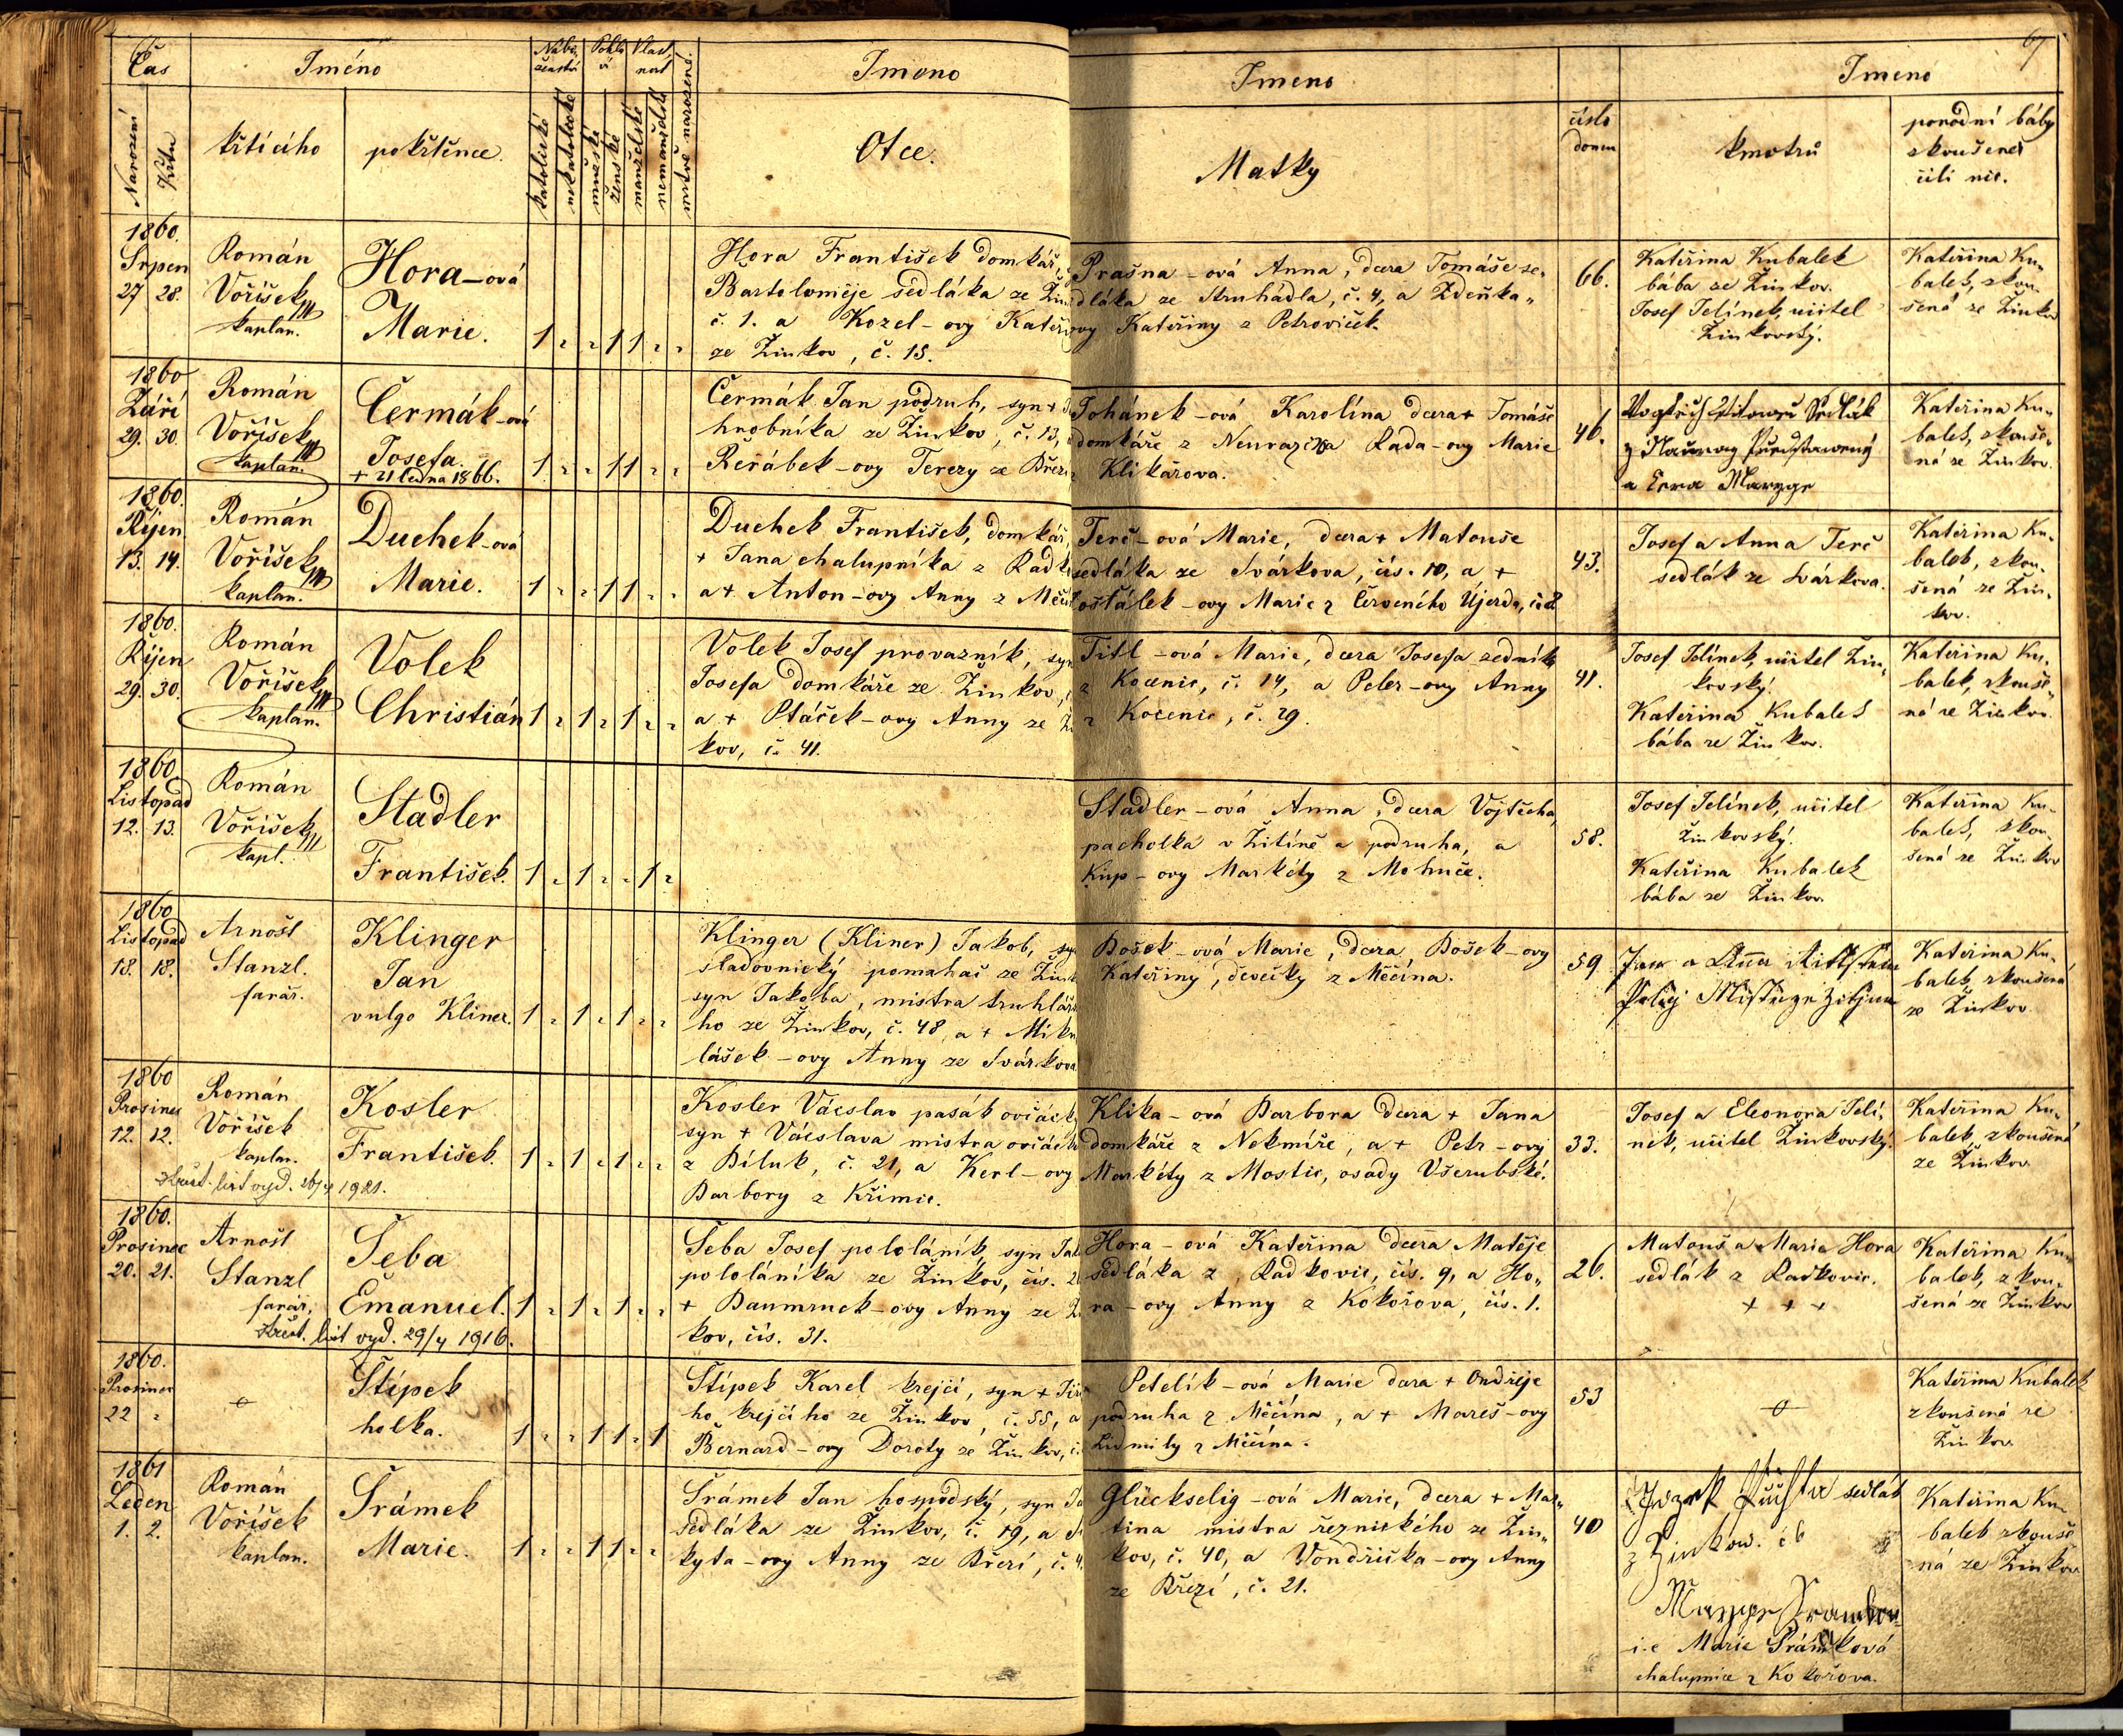 67
Čas
Jméno
Nábo
ženství
Pohla
ví
Vlast
nost
Jmeno
Jmeno
Jmeno
Narození
Křtu
křtícího
pokřtěnce.
katolické
nekatolické
mužské
ženské
manželské
nemanželské
mrtvě narozené.
Otce.
Matky
číslo
domu
kmotrů
porodní báby
zkoušené
čili nic.
1860.
Srpen
27 28.
Román
Voříšek
kaplan.
Hora-ová
Marie.
1 1 1
Hora František domkář,
Bartoloměje sedláka ze Žin
č. 1. a Kozel-ovy Kateři
ze Žinkov, č. 15.
Prašna-ová Anna, dcera Tomáše se-
dláka ze Struhadla, č. 4, a Zdeňka-
ovy Kateřiny z Petroviček.
66.
Kateřina Kubalek
bába ze Žinkov.
Josef Jelínek, učitel
Žinkovský.
Kateřina Ku-
balek, zkou-
šená ze Žinkov
1860
Září
29. 30.
Román
Voříšek
kaplan.
Čermák-ová
Josefa.
+ 21 ledna 1866.
1 1 1
Čermák Jan podruh, syn +
hrobníka ze Žinkov, č. 13,
Řeřábek-ovy Terezy ze Březí
Johánek-ová Karolína dcera + Tomáše
domkáře z Neurazu a Rada-ovy Marie
z Klikařova.
46.
Sedlák
a Marzye
Kateřina Ku-
balek, zkouše-
ná ze Žinkov.
1860.
Říjen
13. 14.
Román
Voříšek
kaplan.
Duchek-ová
Marie.
1 1 1
Duchek František, domkář,
+ Jana chalupníka z Radk
a + Anton-ovy Anny z Měčí
Terč-ová Marie, dcera + Matouše
sedláka ze Svárkova, čís. 10, a +
Košťálek-ovy Marie z Červeného Újezda, č.
43.
Josef a Anna Terč
sedlák ze Svárkova.
Kateřina Ku-
balek, zkou-
šená ze Žin-
kov.
1860.
Říjen
29. 30.
Román
Voříšek
kaplan.
Volek
Christián
1 1 1
Volek Josef provazník, syn
Josefa domkáře ze Žinkov,
a + Ptáček-ovy Anny ze Ži
kov, č. 41.
Titl-ová Marie, dcera Josefa zedníka
z Kocenic, č. 14, a Peler-ovy Anny
z Kocenic, č. 29.
41.
Josef Jelínek, učitel Žin-
kovský.
Kateřina Kubalek
bába ze Žinkov.
Kateřina Ku-
balek, zkouše-
ná ze Žinkov.
1860
Listopad
12. 13.
Román
Voříšek
kapl.
Stadler
František.
1 1 1
Stadler-ová Anna, dcera Vojtěcha,
pacholka v Žitíně a podruha, a
Kup-ovy Markéty z Mohuče.
58.
Josef Jelínek, učitel
Žinkovský.
Kateřina Kubalek
bába ze Žinkov.
Kateřina Ku-
balek, zkou-
šená ze Žinkov
1860
Listopad
18. 18.
Arnošt
Stanzl.
farář.
Klinger
Jan
vulgo Kliner.
1 1 1
Klinger (Kliner) Jakob, syn
sladovnický pomahač ze Žink
syn Jakoba, mistra truhlářs
ho ze Žinkov, č. 48, a + Miku
lášek-ovy Anny ze Svárkova
Došek-ová Marie, dcera Došek-ovy
Kateřiny, děvečky z Měčína.
59
Jan a Anna
Kateřina Ku-
balek, zkoušená
ze Žinkov
1860
Prosinec
12. 12.
Román
Voříšek
kaplan.
Křest. list vyd. 26/4 1921.
Kosler
František.
1 1 1
Kosler Vácslav pasák ovčácký,
syn + Vácslava mistra ovčácké
z Biluk, č. 21, a Kerl-ovy
Barbory z Křimic.
Klika-ová Barbora dcera + Jana
domkáře z Nekmíře, a + Petr-ovy
Markéty z Mostic, osady Všerubské.
33.
Josef a Eleonora Jelí-
nek, učitel Žinkovský.
Kateřina Ku-
balek, zkoušená
ze Žinkov
1860.
Prosinec
20. 21.
Arnošt
Stanzl
farář,
Křest. list vyd. 29/4 1916.
Šeba
Emanuel.
1 1 1
Šeba Josef pololáník, syn Jak
pololáníka ze Žinkov, čís. 2
+ Baumruck-ovy Anny ze Ži
kov, čís. 31.
Hora-ová Kateřina dcera Matěje
sedláka z Radkovic, čís. 9, a Ho-
ra-ovy Anny z Kokořova, čís. 1.
26.
Matouš a Marie Hora
sedlák z Radkovic.
+ + +
Kateřina Ku-
balek, zkou-
šená ze Žinkov
1860.
Prosinec
22
Štípek
holka.
1 1 1 1
Štípek Karel krejčí, syn + Jiří
ho krejčího ze Žinkov č. 55, a
Bernard-ovy Doroty ze Žinkov, č.
Petelík-ová Marie dcera + Ondřeje
podruha z Měčína, a + Mareš-ovy
Lidmily z Měčína.
53
Kateřina Kubalek
zkoušená ze
Žinkov
1861
Leden
1. 2.
Román
Voříšek
kaplan.
Šrámek
Marie.
1 1 1
Šrámek Jan hospodský, syn Ja
sedláka ze Žinkov, č. 19, a
kyta-ovy Anny ze Březí, č. 4.
Glückselig-ová Marie, dcera + Mar-
tina mistra řeznického ze Žin-
kov, č. 40, a Vondřička-ovy Anny
ze Březí, č. 21.
40
Jozef Puchta sedlák
z Žinkow. č 6
Maryye Sramkova
i.e Marie Šrámková
chalupnice z Kokořova.
Kateřina Ku-
balek zkouše
ná ze Žinkov